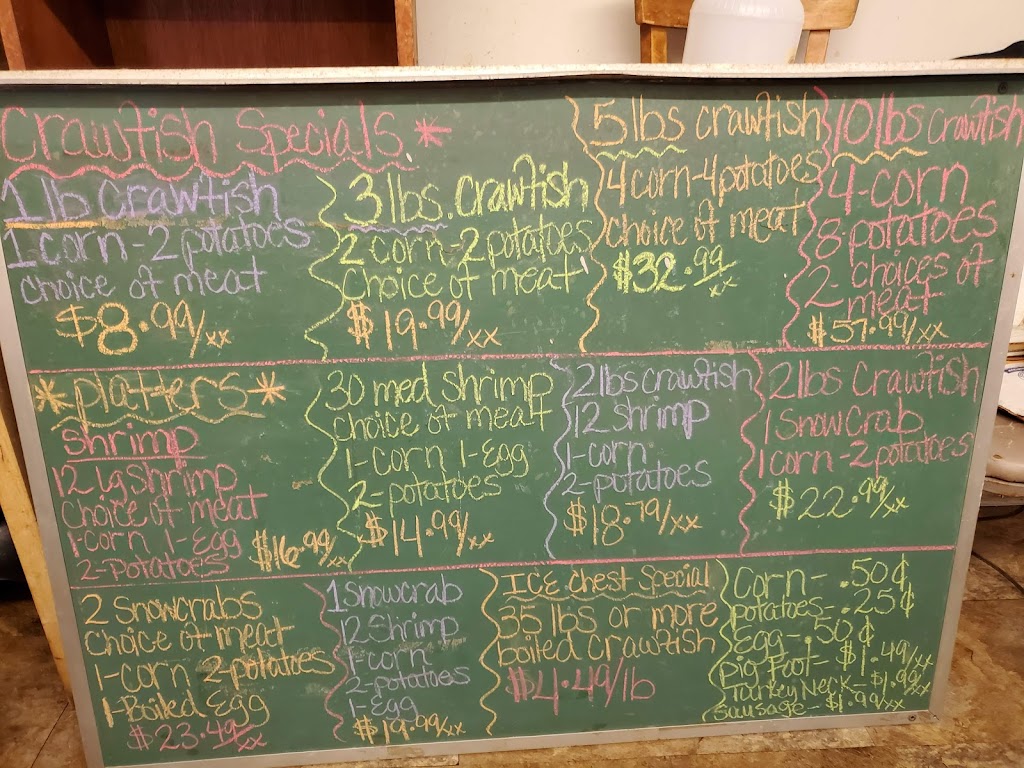 Crawfish Specials *
1 lb crawfish
1 corn - 2 potatoes
choice of meat
$8.99/xx
3 lbs. crawfish
2 corn - 2 potatoes
choice of meat
$19.99/xx
5 lbs crawfish
4 corn - 4 potatoes
choice of meat
$32.99/xx
10 lbs crawfish
4 - corn
8 - potatoes
2 - choices of
meat
$57.99/xx
* platters *
shrimp
12 lg shrimp
choice of meat
1 - corn 1 - Egg
2 - potatoes
$16.99/xx
30 med shrimp
choice of meat
1 - corn 1 - Egg
2 - potatoes
$14.99/xx
2 lbs crawfish
12 shrimp
1 - corn
2 - potatoes
$18.79/xx
2 lbs crawfish
1 Snowcrab
1 corn - 2 potatoes
$22.99/xx
2 Snowcrabs
choice of meat
1 - corn 2 - potatoes
1 - Boiled Egg
$23.49/xx
1 Snowcrab
12 Shrimp
1 - corn
2 - potatoes
1 - Egg
$19.99/xx
ICE Chest Special
35 lbs or more
boiled crawfish
$4.49/lb
Corn - .50¢
potatoes - .25¢
Egg - .50¢
pig Foot - $1.49/xx
Turkey Neck - $1.99/xx
sausage - $1.99/xx